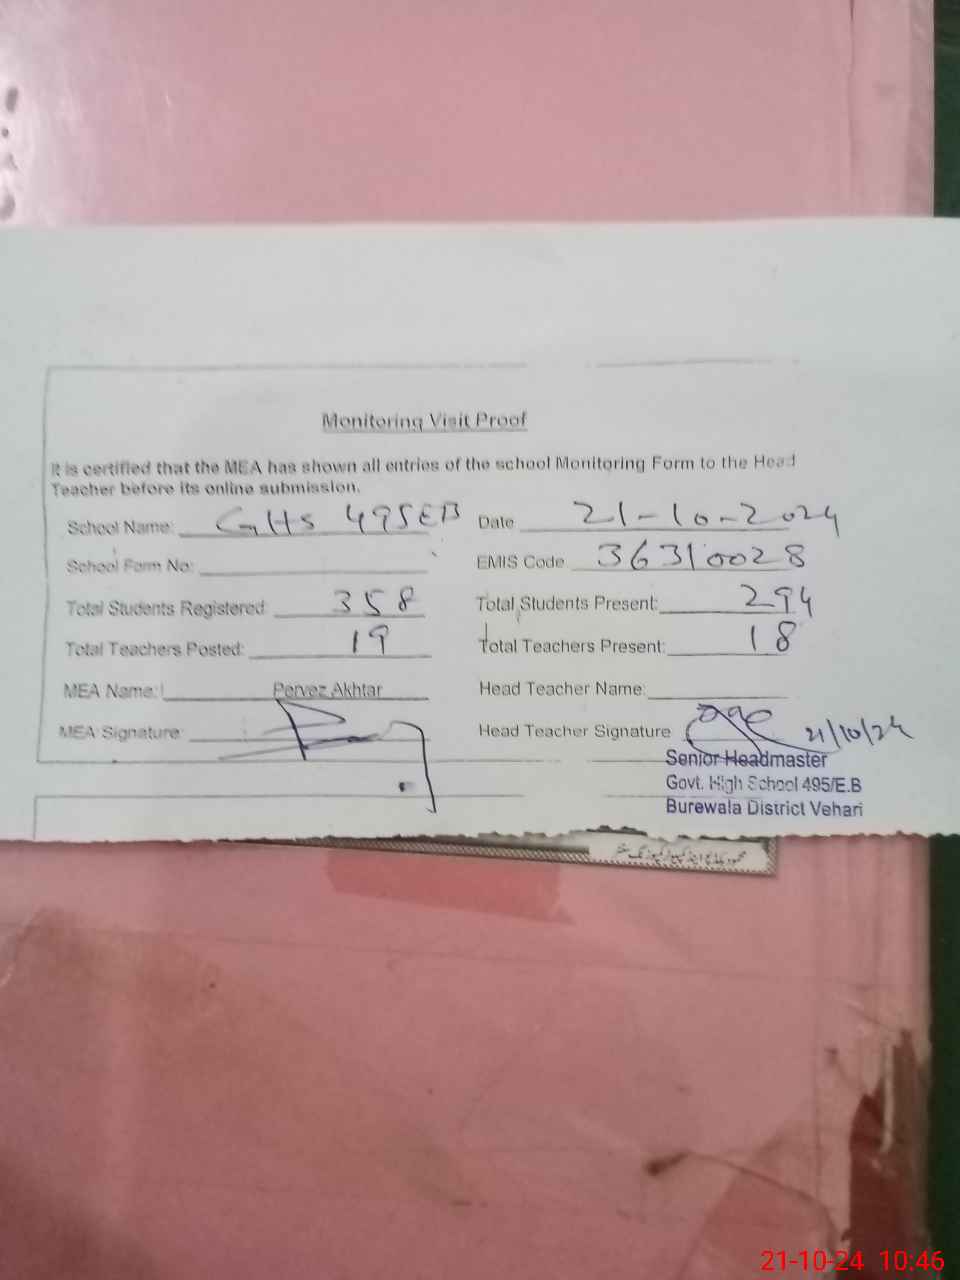 Monitoring Visit Proof
It is certified that the MEA has shown all entries of the school Monitoring Form to the Head
Teacher before its online submission.
School Name: GHS 495EB Date 21-10-2024
School Form No: EMIS Code 36310028
Total Students Registered: 358 Total Students Present: 294
Total Teachers Posted: 19 Total Teachers Present: 18
MEA Name: Pervez Akhtar Head Teacher Name:
MEA Signature: Head Teacher Signature 21/10/24
Senior Headmaster
Govt. High School 495/E.B
Burewala District Vehari
21-10-24 10:46